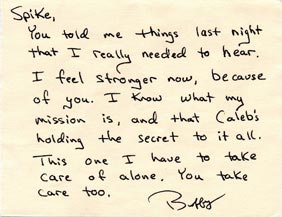 Spike,
You told me things last night
that I really needed to hear.
I feel stronger now, because
of you. I know what my
mission is, and that Caleb's
holding the secret to it all.
This one I have to take
care of alone. You take
care too.
Buffy